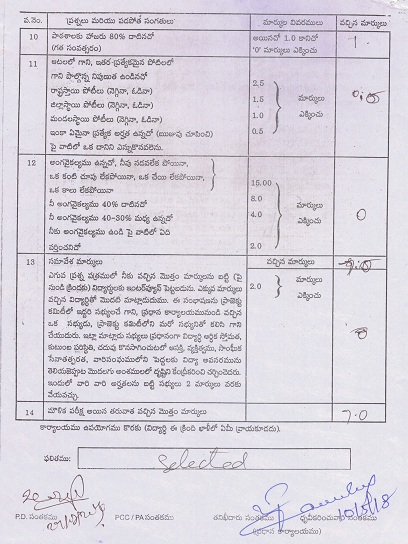 వ.నెం. ప్రశ్నలు మరియు పరపోత సంగతులు మార్కుల వివరములు వచ్చిన మార్కులు
10 పాఠశాలకు హాజరు 80% దాటినచో అయినచో 1.0 కానిచో 1.
(గత సంవత్సరం) '0' మార్కులు ఎక్కించు
11 ఆటలలో గాని, ఇతర ప్రత్యేకమైన పోటీలలో
గాని పాల్గొన్న నిపుణత ఉండినచో 2.5
రాష్ట్రస్తాయి పోటీలు (నెగ్గినా, ఓడినా) 1.5 మార్కులు 0.5
జిల్లాస్తాయి పోటీలు (నెగ్గినా, ఓడినా) 1.0 ఎక్కించు
మండలస్తాయి పోటీలు (నెగ్గినా, ఓడినా) 0.5
ఇంకా ఏమైనా ప్రత్యేక అర్హత ఉన్నచో (ఋజువు చూపించి)
పై వాటిలో ఒక దానిని ఎన్నుకొనవలెను.
12 అంగవైకల్యము ఉన్నచో, నీవు నడవలేక పోయినా,
ఒక కంటి చూపు లేకపోయినా, ఒక చేయి లేకపోయినా, 15.00
ఒక కాలు లేకపోయినా 8.0 మార్కులు
నీ అంగవైకల్యము 40% దాటినచో 4.0 ఎక్కించు 0
నీ అంగవైకల్యము 40-30% మధ్య ఉన్నచో
నీకు అంగవైకల్యము ఉండి పై వాటిలో ఏది
వర్తించనిచో 2.0
13 సమావేశ మార్కులు వచ్చిన మార్కులు
ఎగువ ప్రశ్న పత్రములో నీకు వచ్చిన మొత్తం మార్కులను బట్టి (పై
నుండి క్రిందకు) విద్యార్థులకు ఇంటర్వ్యూకే పెట్టబడును. ఎక్కువ మార్కులు 2.0 మార్కులు
వచ్చిన విద్యార్థితో మొదటి మాట్లాడుదుము. ఈ సంభాషణను ప్రాజెక్టు ఎక్కించు
కమిటీలో ఇద్దరి సభ్యుంచే గాని, ప్రధాన కార్యాలయమునుండి వచ్చిన
ఒక సభ్యుడు, ప్రాజెక్టు కమిటీలోని మరో సభ్యునితో కలిసి గాని
చేయుదురు. ఇట్లా మాట్లాడు సభ్యులు ప్రధానంగా విద్యార్థి ఆర్థిక స్తోమత, 0
కుటుంబ పరిస్థితి, చదువు కొనసాగించుటలో ఆసక్తి, వ్యక్తిత్వము, సాంఘిక
సేనాతత్పరత, వారిసంఘములోని పెద్దలకు విద్యా అవసరమును
తెలియజెప్పుట మొదలగు అంశములలో దృష్టిని కేంద్రీకరించి చర్చించెదరు.
ఇందులో వారి వారి అర్హతలను బట్టి సభ్యులు 2 మార్కులు వరకు
వేయవచ్చు.
14 మౌళిక పరీక్ష అయిన తరువాత వచ్చిన మొత్తం మార్కులు 7.0
కార్యాలయము ఉపయోగము కొరకు (విద్యార్థి ఈ క్రింది ఖాళీలో ఏమీ వ్రాయకూడదు).
ఫలితము: Selected
10/5/18
P.D. సంతకము PCC / PA సంతకము తనిఖీదారు సంతకము ధృవీకరించువారి సంతకము
(ప్రధాన కార్యాలయం)